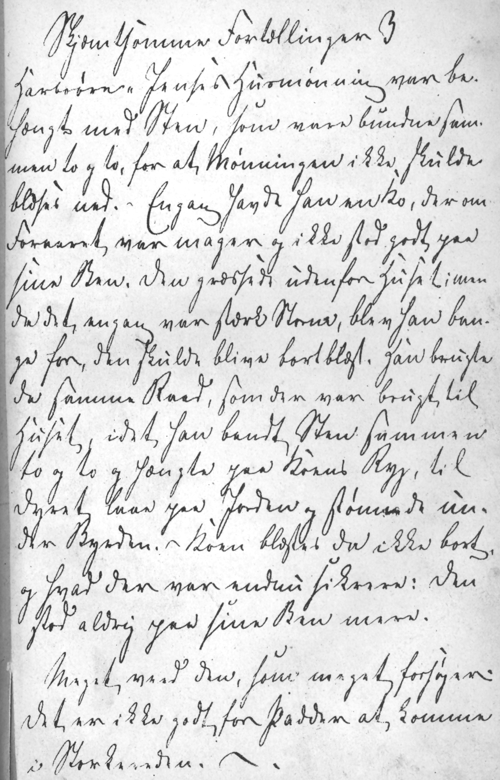 Skjæmtsomme Fortællinger 3
Harboöre - Jenses Huusmönning var be-
hængt med Sten, som vare bundne sam-
men to og to, for at Mönningen ikke skulde
blæses ned. - Engang havde han en Ko, der om
Foraaret var mager og ikke stod godt paa
sine Ben. Den græssede udenfor Huset; men
da det engang var stærk Storm, blev han ban-
ge for, den skulde blive bortblæst. Han brugte
da samme Raad, som der var brugt til
Huset, idet han bandt Sten sammen
to og to og hængte paa Koens Ryg, til
Dyret laae paa Jorden og stönnede un-
der Byrden. - Koen blæstes da ikke bort,
og hvad der var endnu sikrere: den
stod aldrig paa sine Ben mere.
Meget veed den, som meget forsøger:
det er ikke godt for Padder at komme
i Storkereden.